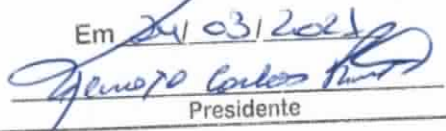 Em 24/03/2021
Carlos
Presidente